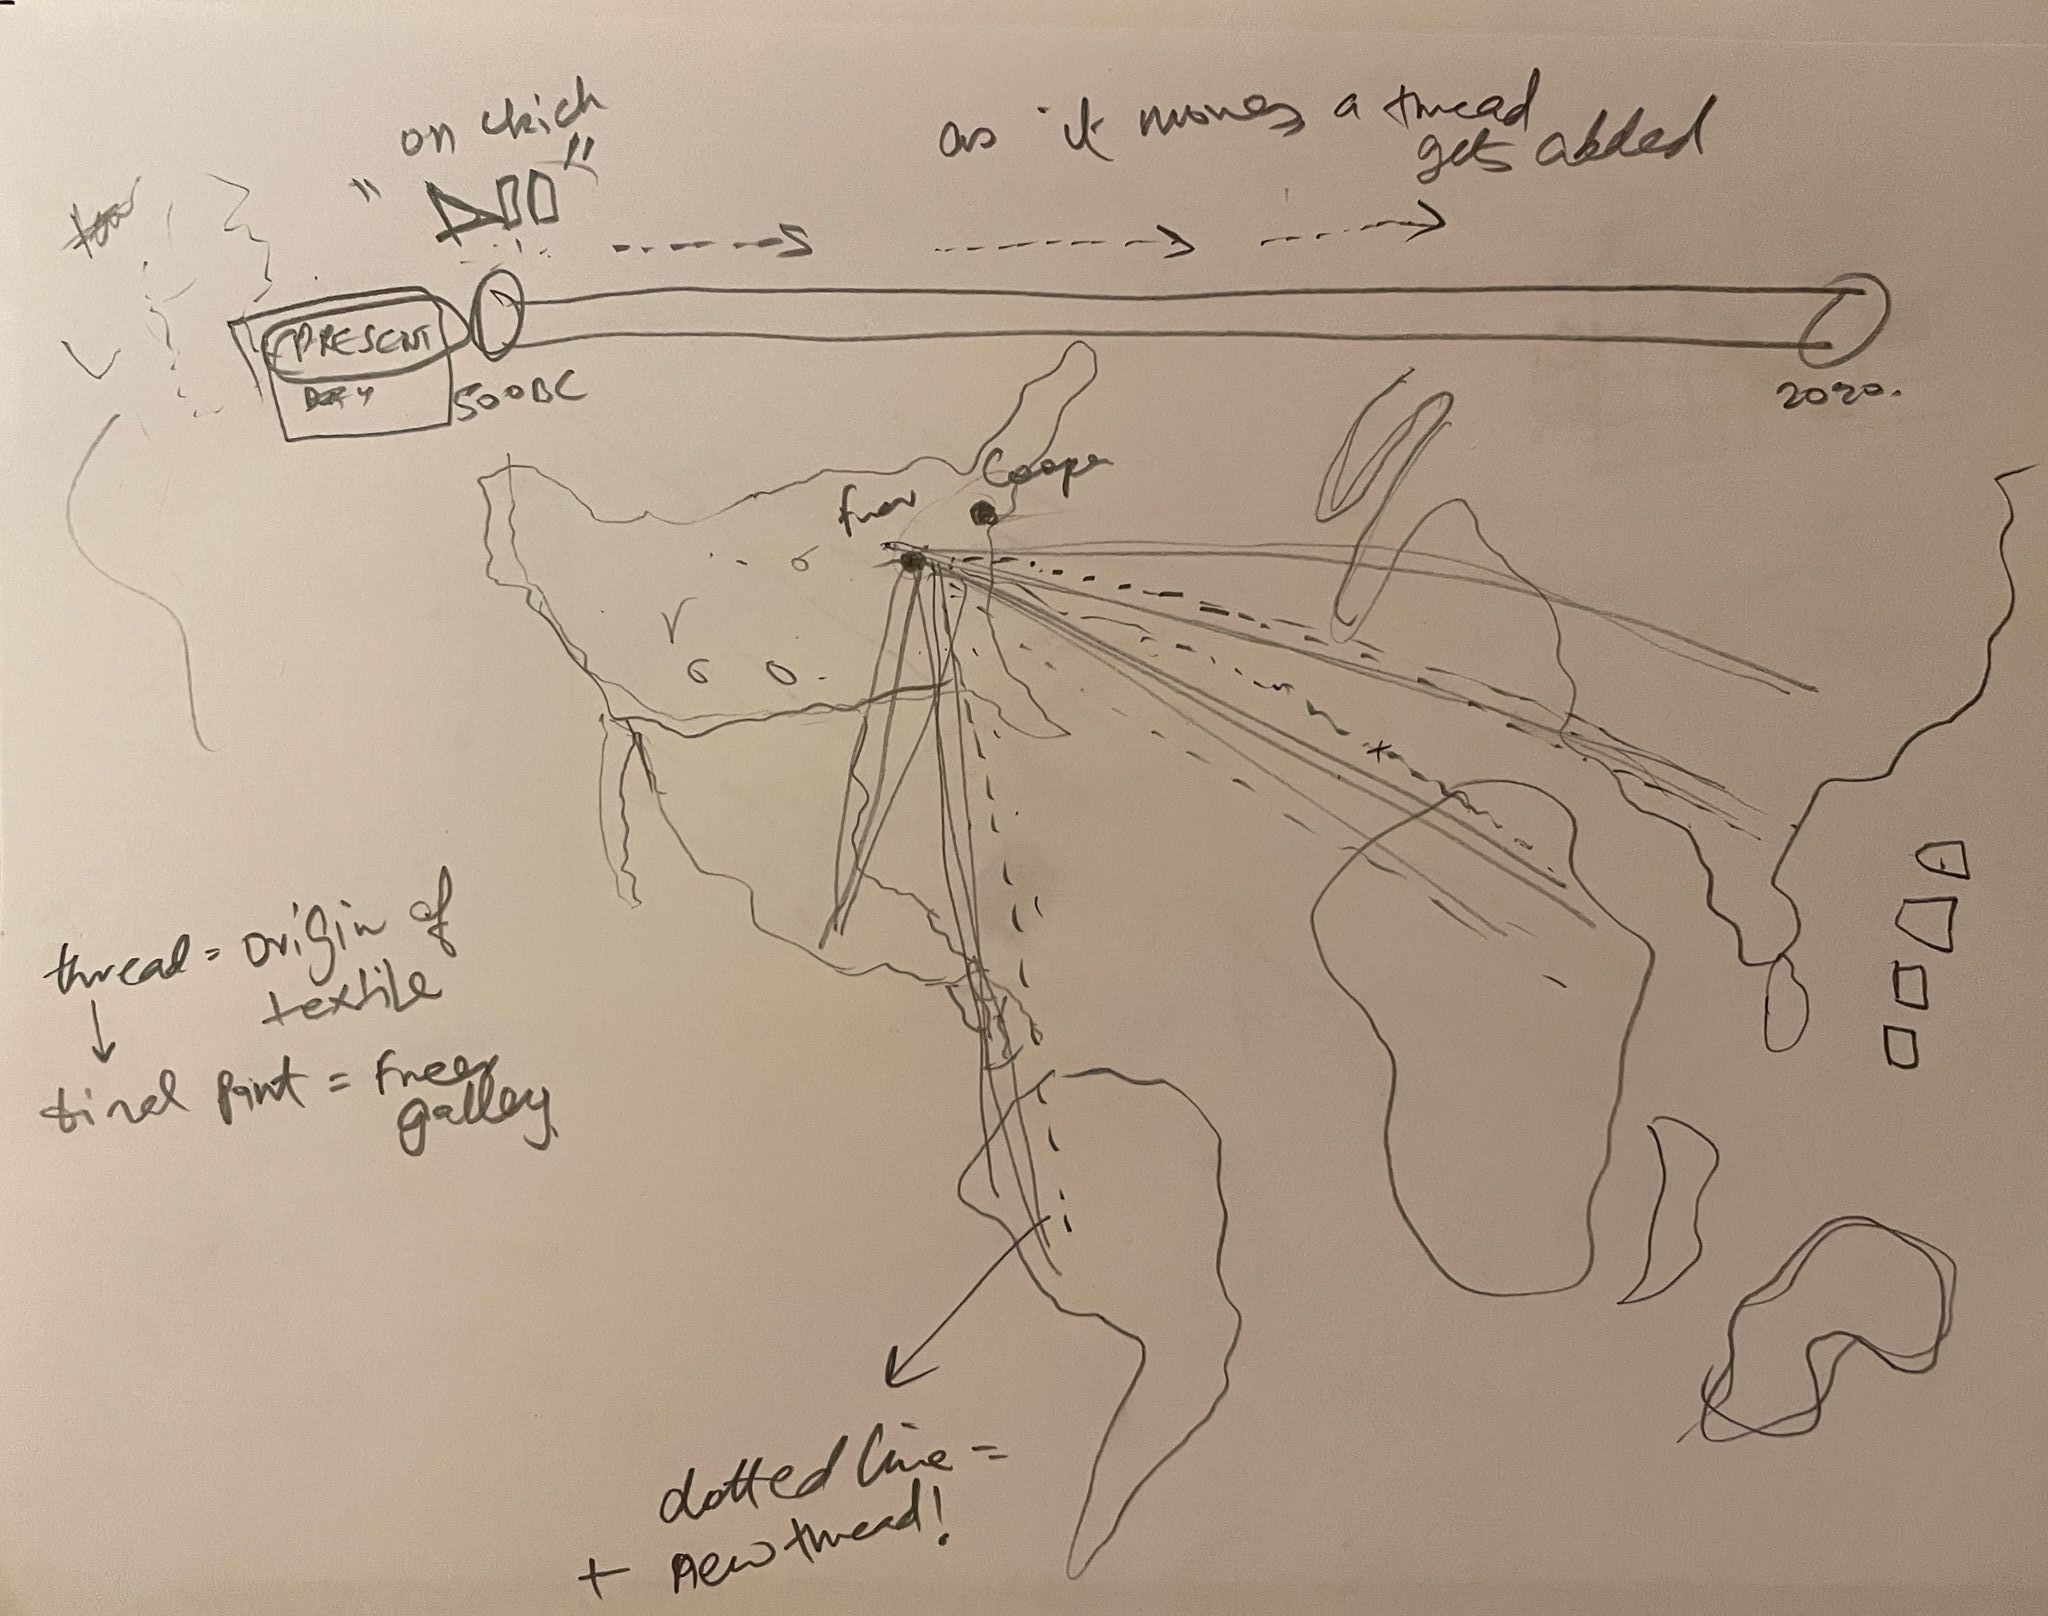 "on click
"
as it moves a thread
gets added
PRESENT
DAY
500BC
2020.
Cooper
freer
thread = origin of
textile
final point = Freer
gallery
dotted line =
+ new thread!